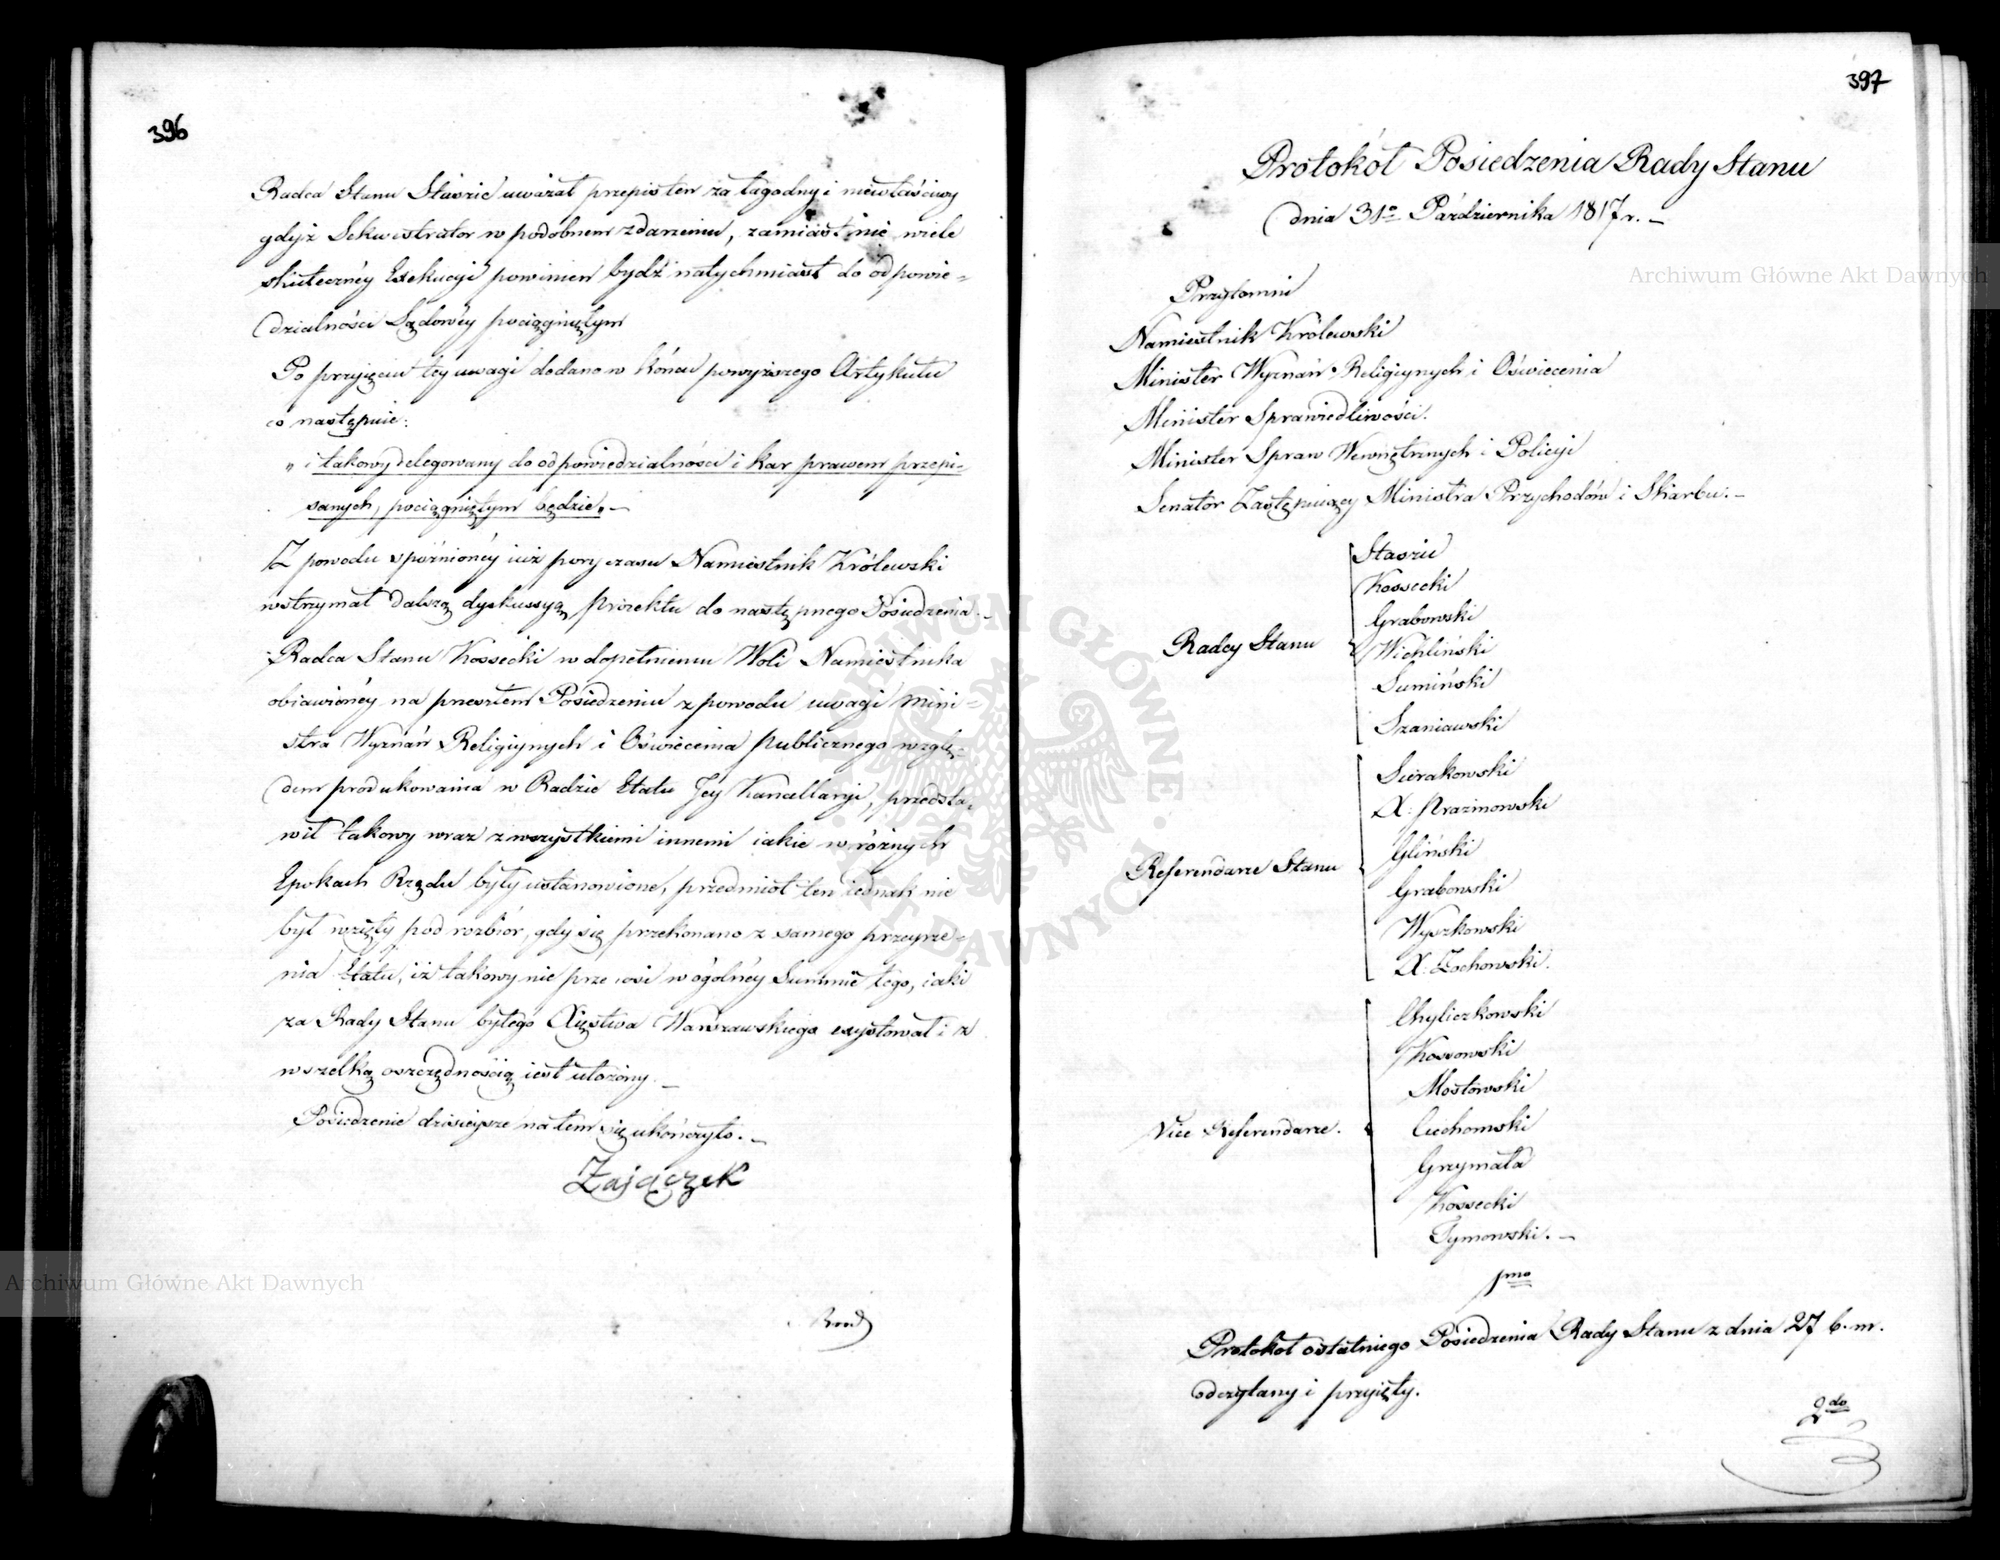 396
Radca Stanu Staszic uważał przepis ten za łagodny i niewłaściwy
gdyż Sekwestrator w podobnem zdarzeniu, zamiast nie wiele
skutecznéy Exekucyi powinien bydź natychmiast do odpowie-
dzialności Sądowéy pociągniętym
Po przyięciu téy uwagi dodano w końcu powyższego Artykułu
co następuie:
„i takowy delegowany do odpowiedzialności i kar prawem przepi-
sanych, pociągniętym będzie„ —
Z powodu spóźnionéy iuż pory czasu Namiestnik Królewski
wstrzymał dalszą dyskussyą Proiektu do następnego Posiedzenia. -
Radca Stanu Kossecki w dopełnieniu Woli Namiestnika
obiawionéy na przeszłem Posiedzeniu z powodu uwagi Mini-
stra Wyznań Religiynych i Oświecenia publicznego wzglę-
dem produkowania w Radzie Etatu Jéy Kancellaryi, przedsta-
wił takowy wraz z wszystkiemi innemi iakie w różnych
Epokach Rządu były ustanowione, przedmiot ten iednak nie
był wzięty pod rozbiór, gdy się przekonano z samego przeyrze-
nia Etatu, iż takowy nie przenosi w ogólnéy Summie tego, iaki
za Rady Stanu byłego Xięstwa Warszawskiego exystował i z
wszelką oszczędnością iest ułożony. —
Posiedzenie dzisieysze na tem się ukończyło. —
Zajączek
397
Protokół Posiedzenia Rady Stanu
dnia 31o Października 1817 r. —
Przytomni
Namiestnik Królewski
Minister Wyznań Religiynych i Oświecenia
Minister Sprawiedliwości.
Minister Spraw Wewnętrznych i Policyi
Senator Zastępuiący Ministra Przychodów i Skarbu. —
Radcy Stanu
Staszic
Kossecki
Grabowski
Wichliński
Sumiński
Szaniawski
Referendarze Stanu
Sierakowski
X. Prazmowski
Gliński
Grabowski
Wyszkowski
X. Zochowski.
Vice Referendarze.
Chyliczkowski
Kossowski
Mostowski
Ciechomski
Grzymała
Kossecki
Tymowski. —
1mo
Protokół ostatniego Posiedzenia Rady Stanu z dnia 27 b. m.
odczytany i przyięty.
2do
Archiwum Główne Akt Dawnych
Archiwum Główne Akt Dawnych
ARCHIWUM GŁÓWNE AKT DAWNYCH